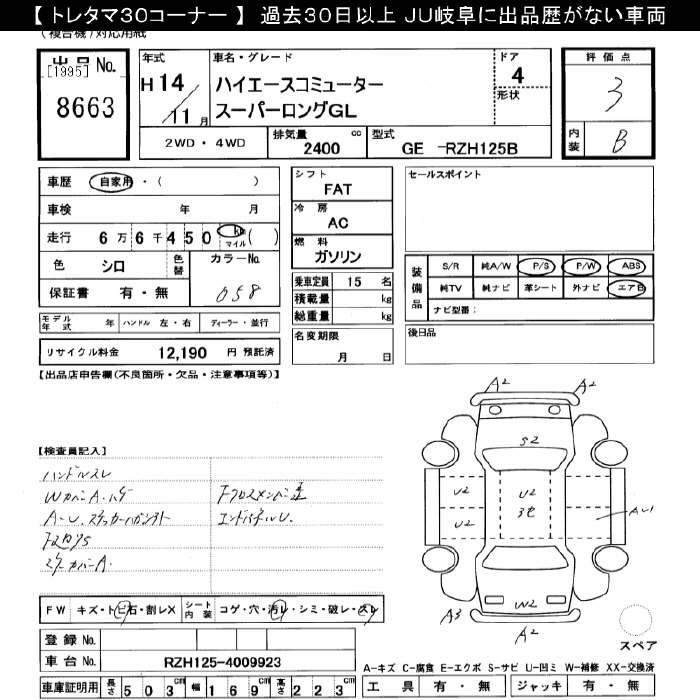 【 トレタマ30コーナー 】 過去30日以上 JU岐阜に出品歴がない車両
(複合機)対応用紙
出品No.
[1995]
8663
年式
H 14
11 月
車名・グレード
ハイエースコミューター
スーパーロングGL
ドア
4
形状
2WD・4WD
排気量
2400
cc
型式
GE -RZH125B
評価点
3
内装
B
車歴 自家用・( )
車検 年 月
走行 6万6千450 km マイル ( )
色 シロ
色替
カラーNo.
058
保証書 有・無
シフト
FAT
冷房
AC
燃料
ガソリン
乗車定員 15 名
積載量 kg
総重量 kg
名変期限
月 日
セールスポイント
装備品
S/R 純A/W P/S P/W ABS
純TV 純ナビ 革シート 外ナビ エアB
ナビ型番:
後日品
モデル年式 年 ハンドル 左・右 ディーラー・並行
リサイクル料金 12,190 円 預託済
【出品店申告欄(不良箇所・欠品・注意事項等)】
【検査員記入】
ハンドルスレ
WカバーA.ハゲ
A-U.ステッカーハガシアト
エンドパネルU.
A2
A2
S2
U2
U2
U2
3ヶ
AU1
W2
A3
A2
スペア
FW キズ・トビ石・割レX
シート内装 コゲ・穴・汚レ・シミ・破レ・スレ
登録No.
車台No. RZH125-4009923
車庫証明用 長さ 503cm 幅 169cm 高さ 223cm
A-キズ C-腐食 E-エクボ S-サビ U-凹ミ W-補修 XX-交換済
工具 有・無 ジャッキ 有・無